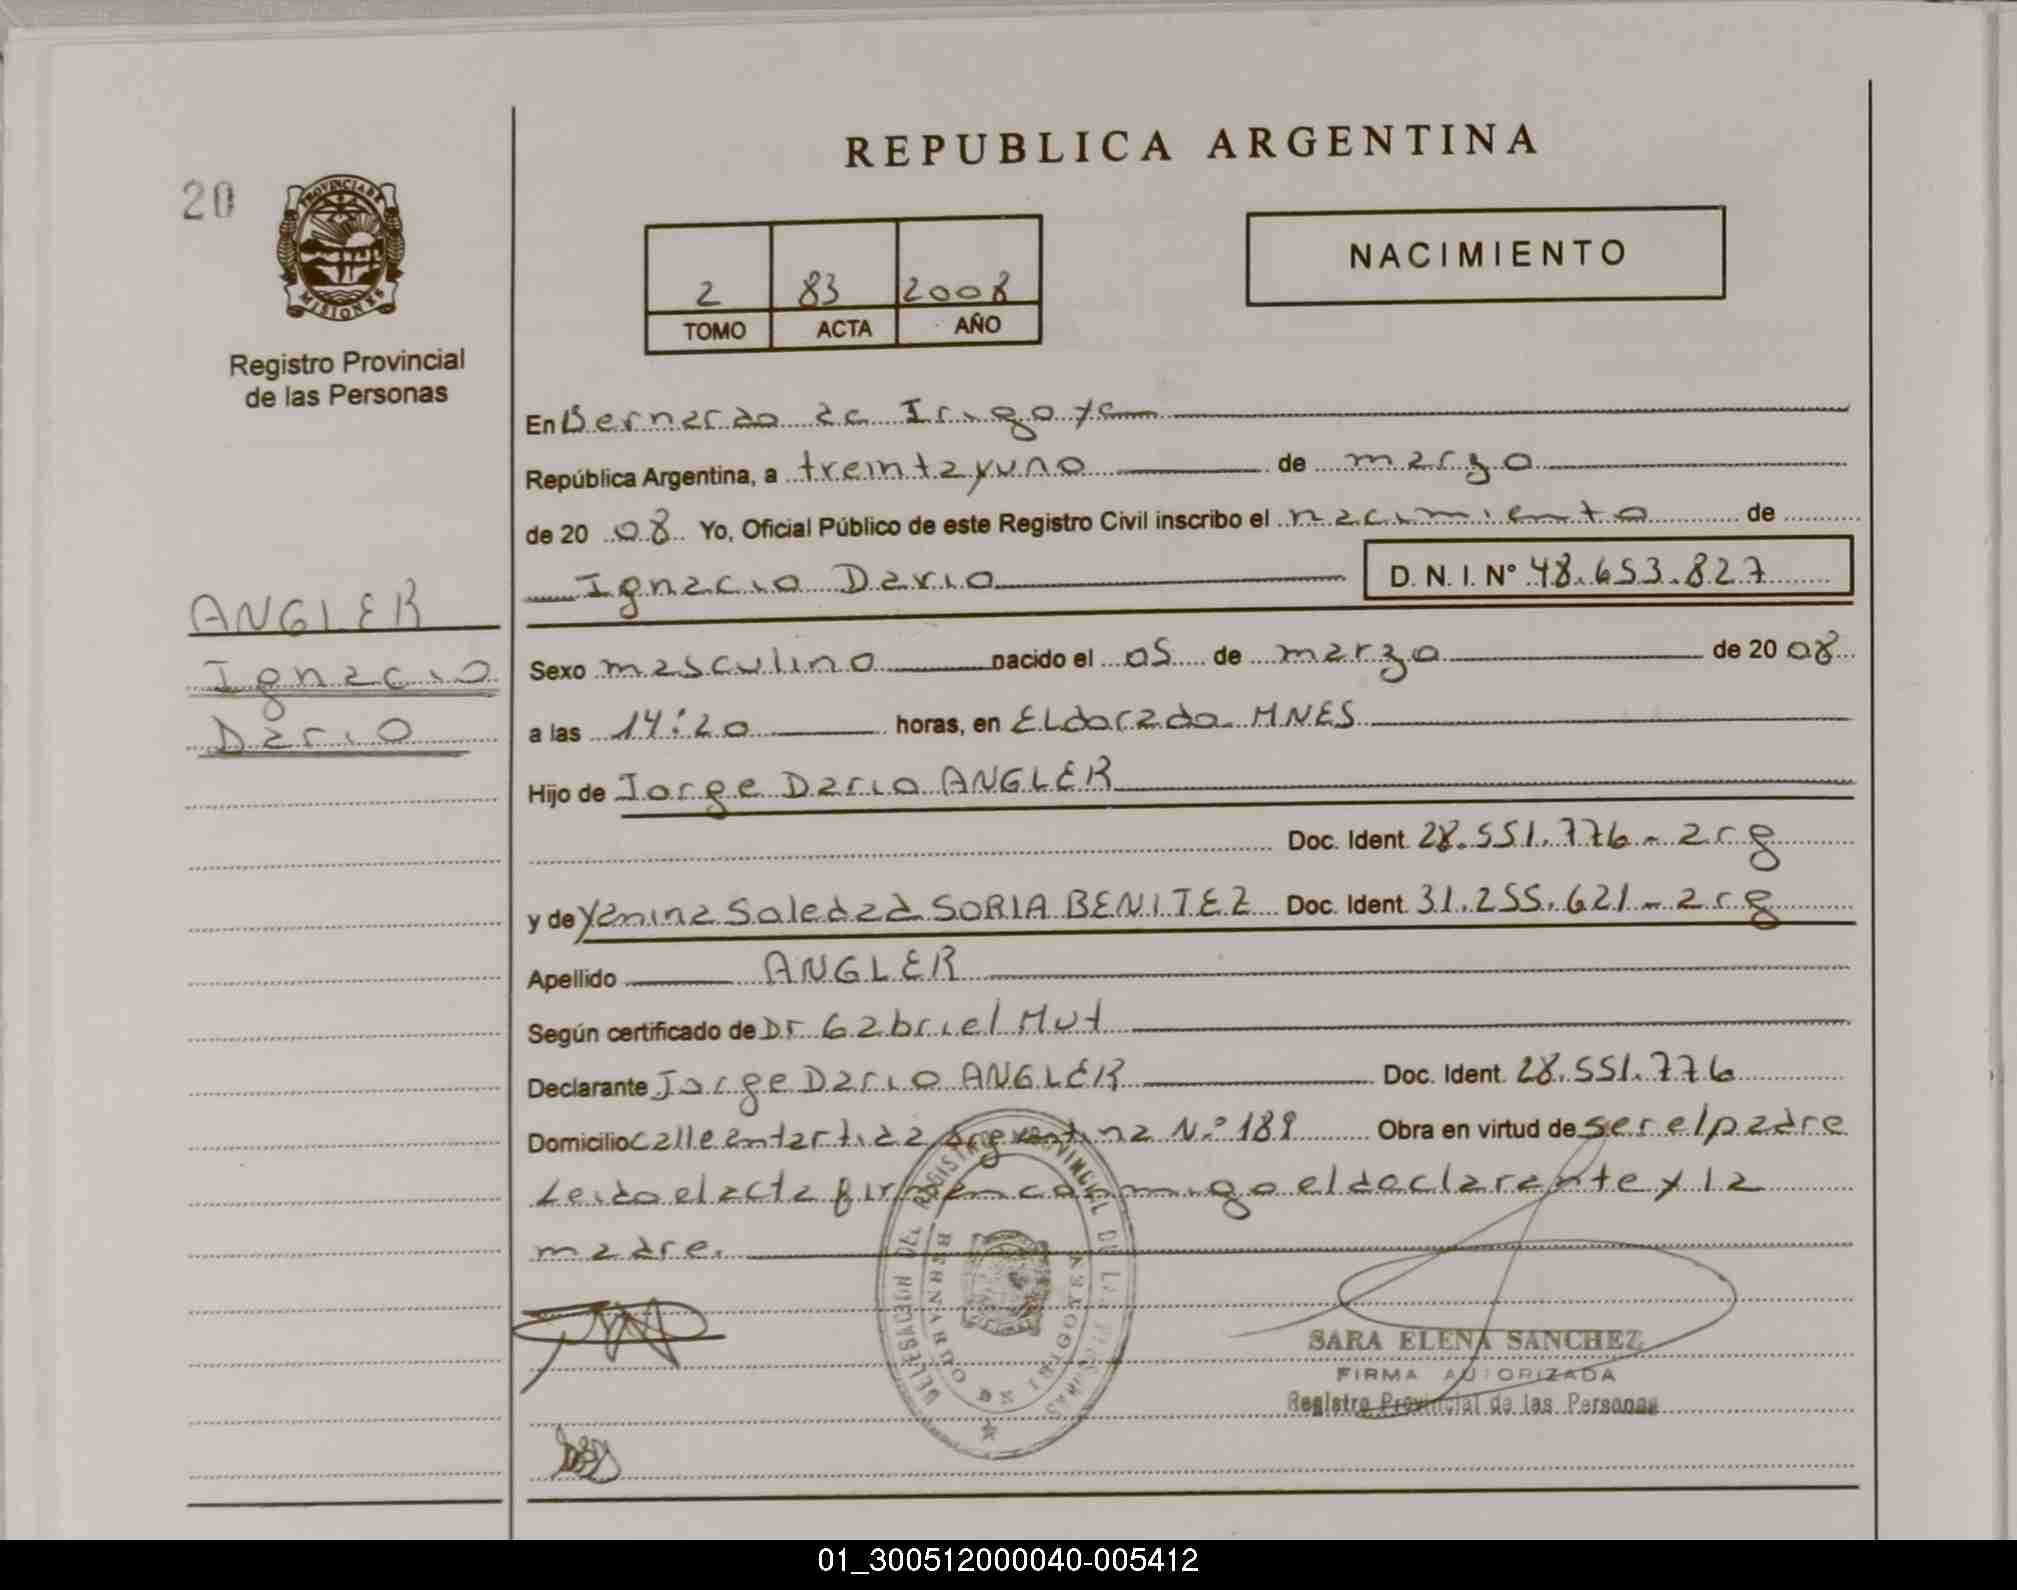 REPUBLICA ARGENTINA
20
PROVINCIA DE
MISIONES
Registro Provincial
de las Personas
NACIMIENTO
2 83 2008
TOMO ACTA AÑO
En Bernardo de Irigoye
República Argentina, a treinta y uno de marzo
de 20 08 Yo, Oficial Público de este Registro Civil inscribo el nacimiento de
Ignacio Dario D. N. I. N° 48.653.827
ANGLER
Ignacio
Dario
Sexo masculino nacido el 05 de marzo de 20 08
a las 14:20 horas, en Eldorado MNES
Hijo de Jorge Dario ANGLER
Doc. Ident. 28.551.776 - arg
y de Yanina Soledad SORIA BENITEZ Doc. Ident. 31.255.621 - arg
Apellido ANGLER
Según certificado de Dr Gabriel Mut
Declarante Jorge Dario ANGLER Doc. Ident. 28.551.776
Domicilio calle antartida Argentina N° 189 Obra en virtud de ser el padre
Leido el acta firman conmigo el declarante y la
madre.
DELEGACION DEL REGISTRO PROVINCIAL DE LAS PERSONAS
BERNARDO DE IRIGOYEN
SARA ELENA SANCHEZ
FIRMA AUTORIZADA
Registro Provincial de las Personas
01_300512000040-005412